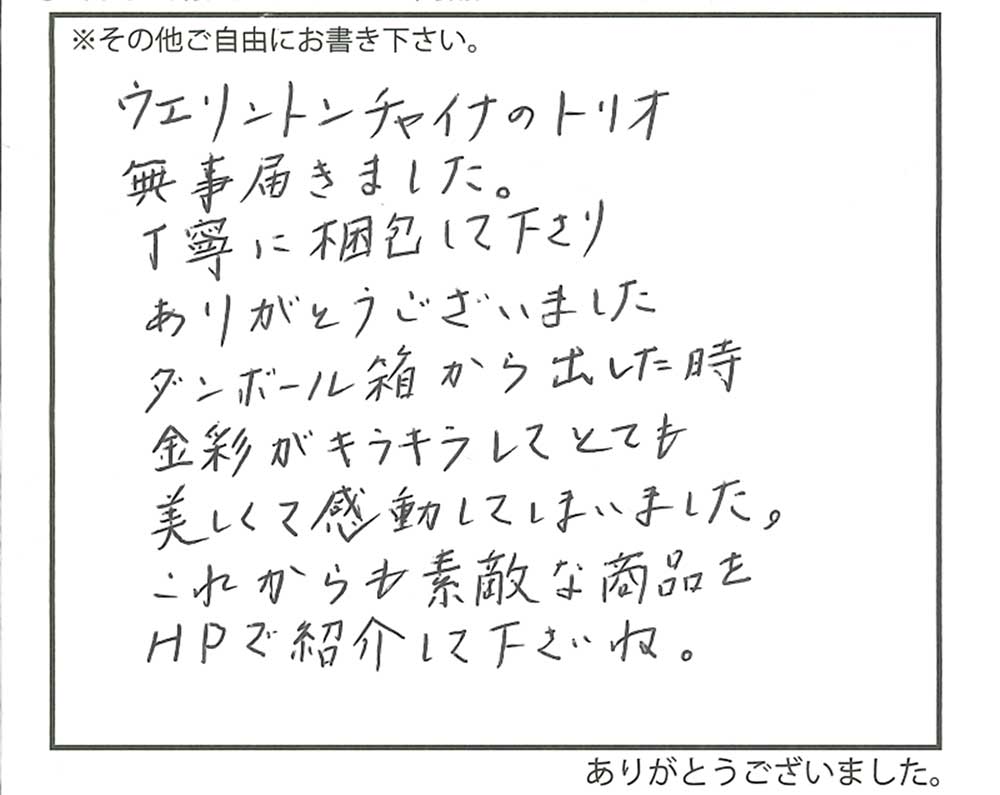 ※その他ご自由にお書き下さい。
ウエリントンチャイナのトリオ
無事届きました。
丁寧に梱包して下さり
ありがとうございました
ダンボール箱から出した時
金彩がキラキラしてとても
美しくて感動してしまいました。
これからも素敵な商品を
HPで紹介して下さいね。
ありがとうございました。